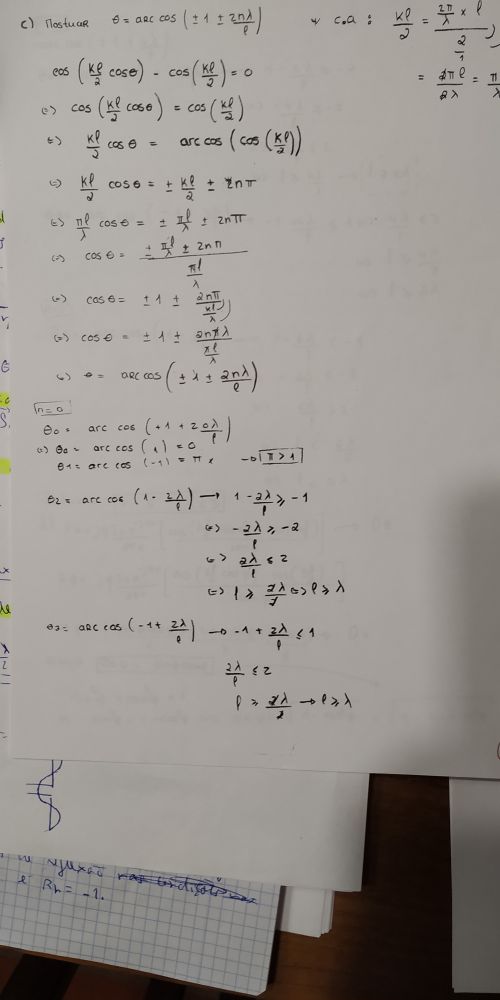 c) Mostrar θ = arc cos (± 1 ± 2nλ/ℓ)
* c.a : kℓ/2 = (2π/λ × ℓ)/(2/1)
= 2πℓ/2λ = π
cos (kℓ/2 cosθ) - cos (kℓ/2) = 0
(=) cos (kℓ/2 cosθ) = cos (kℓ/2)
(=) kℓ/2 cosθ = arc cos (cos (kℓ/2))
(=) kℓ/2 cosθ = ± kℓ/2 ± 2nπ
(=) πℓ/λ cosθ = ± πℓ/λ ± 2nπ
(=) cosθ = (± πℓ/λ ± 2nπ)/(πℓ/λ)
(=) cosθ = ± 1 ± 2nπ/(πℓ/λ)
(=) cosθ = ± 1 ± 2nπλ/πℓ
(=) θ = arc cos (± 1 ± 2nλ/ℓ)
n=0
θ0 = arc cos (+1 + 2 0λ/ℓ)
(=) θ0 = arc cos (1) = 0
θ1 = arc cos (-1) = π × → π > 1
θ2 = arc cos (1 - 2λ/ℓ) → 1 - 2λ/ℓ ≥ -1
(=) -2λ/ℓ ≥ -2
(=) 2λ/ℓ ≤ 2
(=) ℓ ≥ 2λ/2 (=) ℓ ≥ λ
θ3 = arc cos (-1 + 2λ/ℓ) → -1 + 2λ/ℓ ≤ 1
2λ/ℓ ≤ 2
ℓ ≥ 2λ/2 → ℓ ≥ λ
= -1.